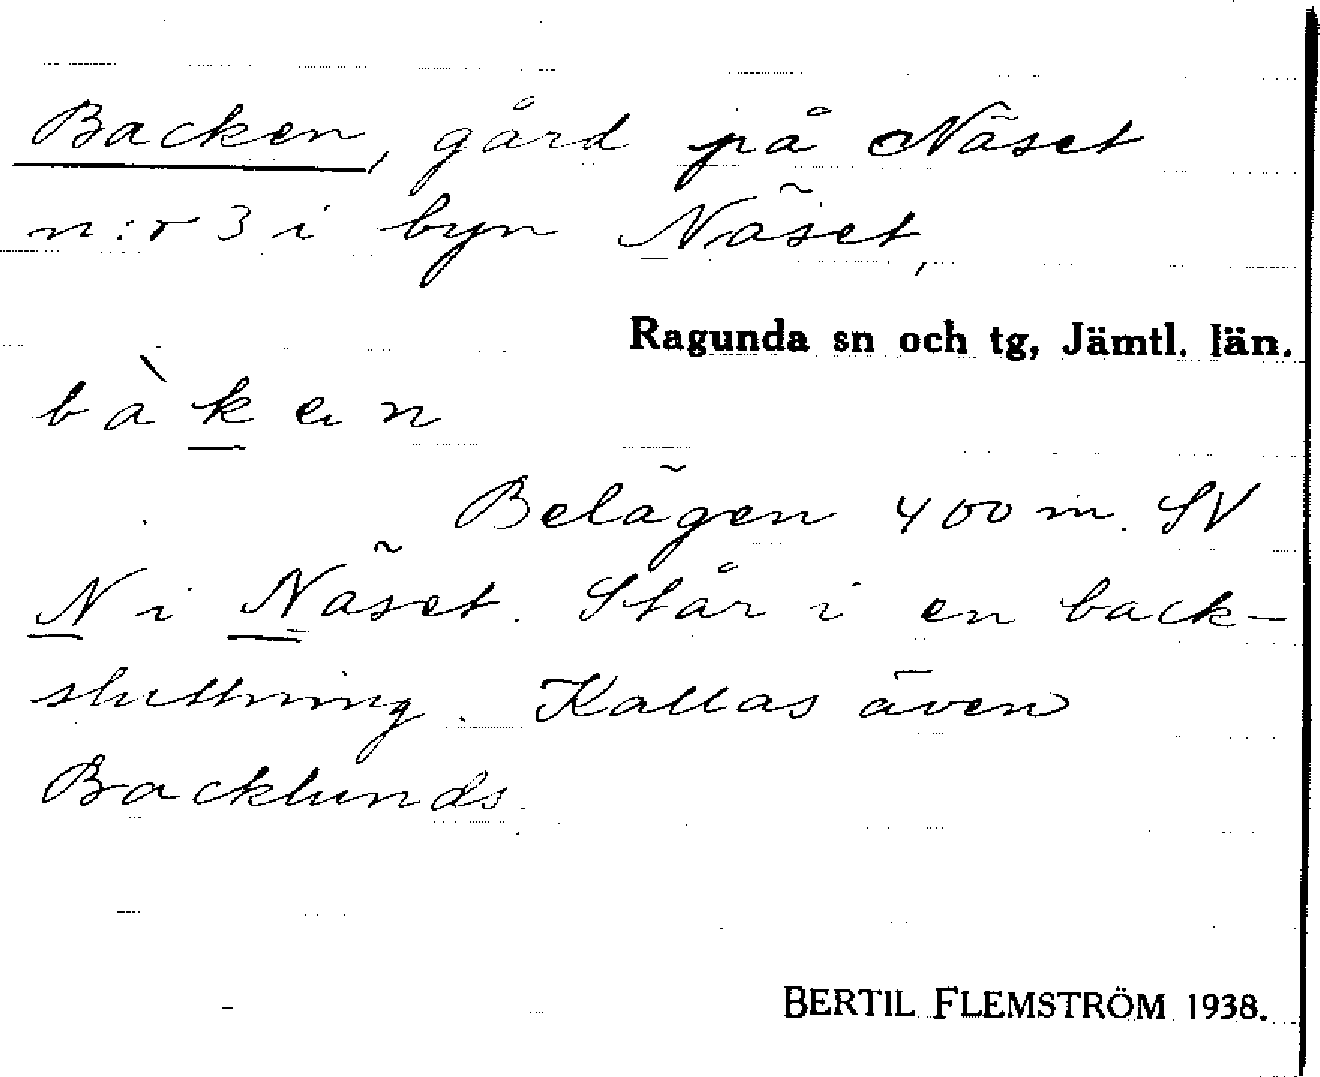 Backen, gård på Näset
n:r 3 i byn Näset,
Ragunda sn och tg, Jämtl. län.
bàken
Belägen 400 m. SV
N i Näset. Står i en back-
sluttning. Kallas även
Backlunds.
BERTIL FLEMSTRÖM 1938.